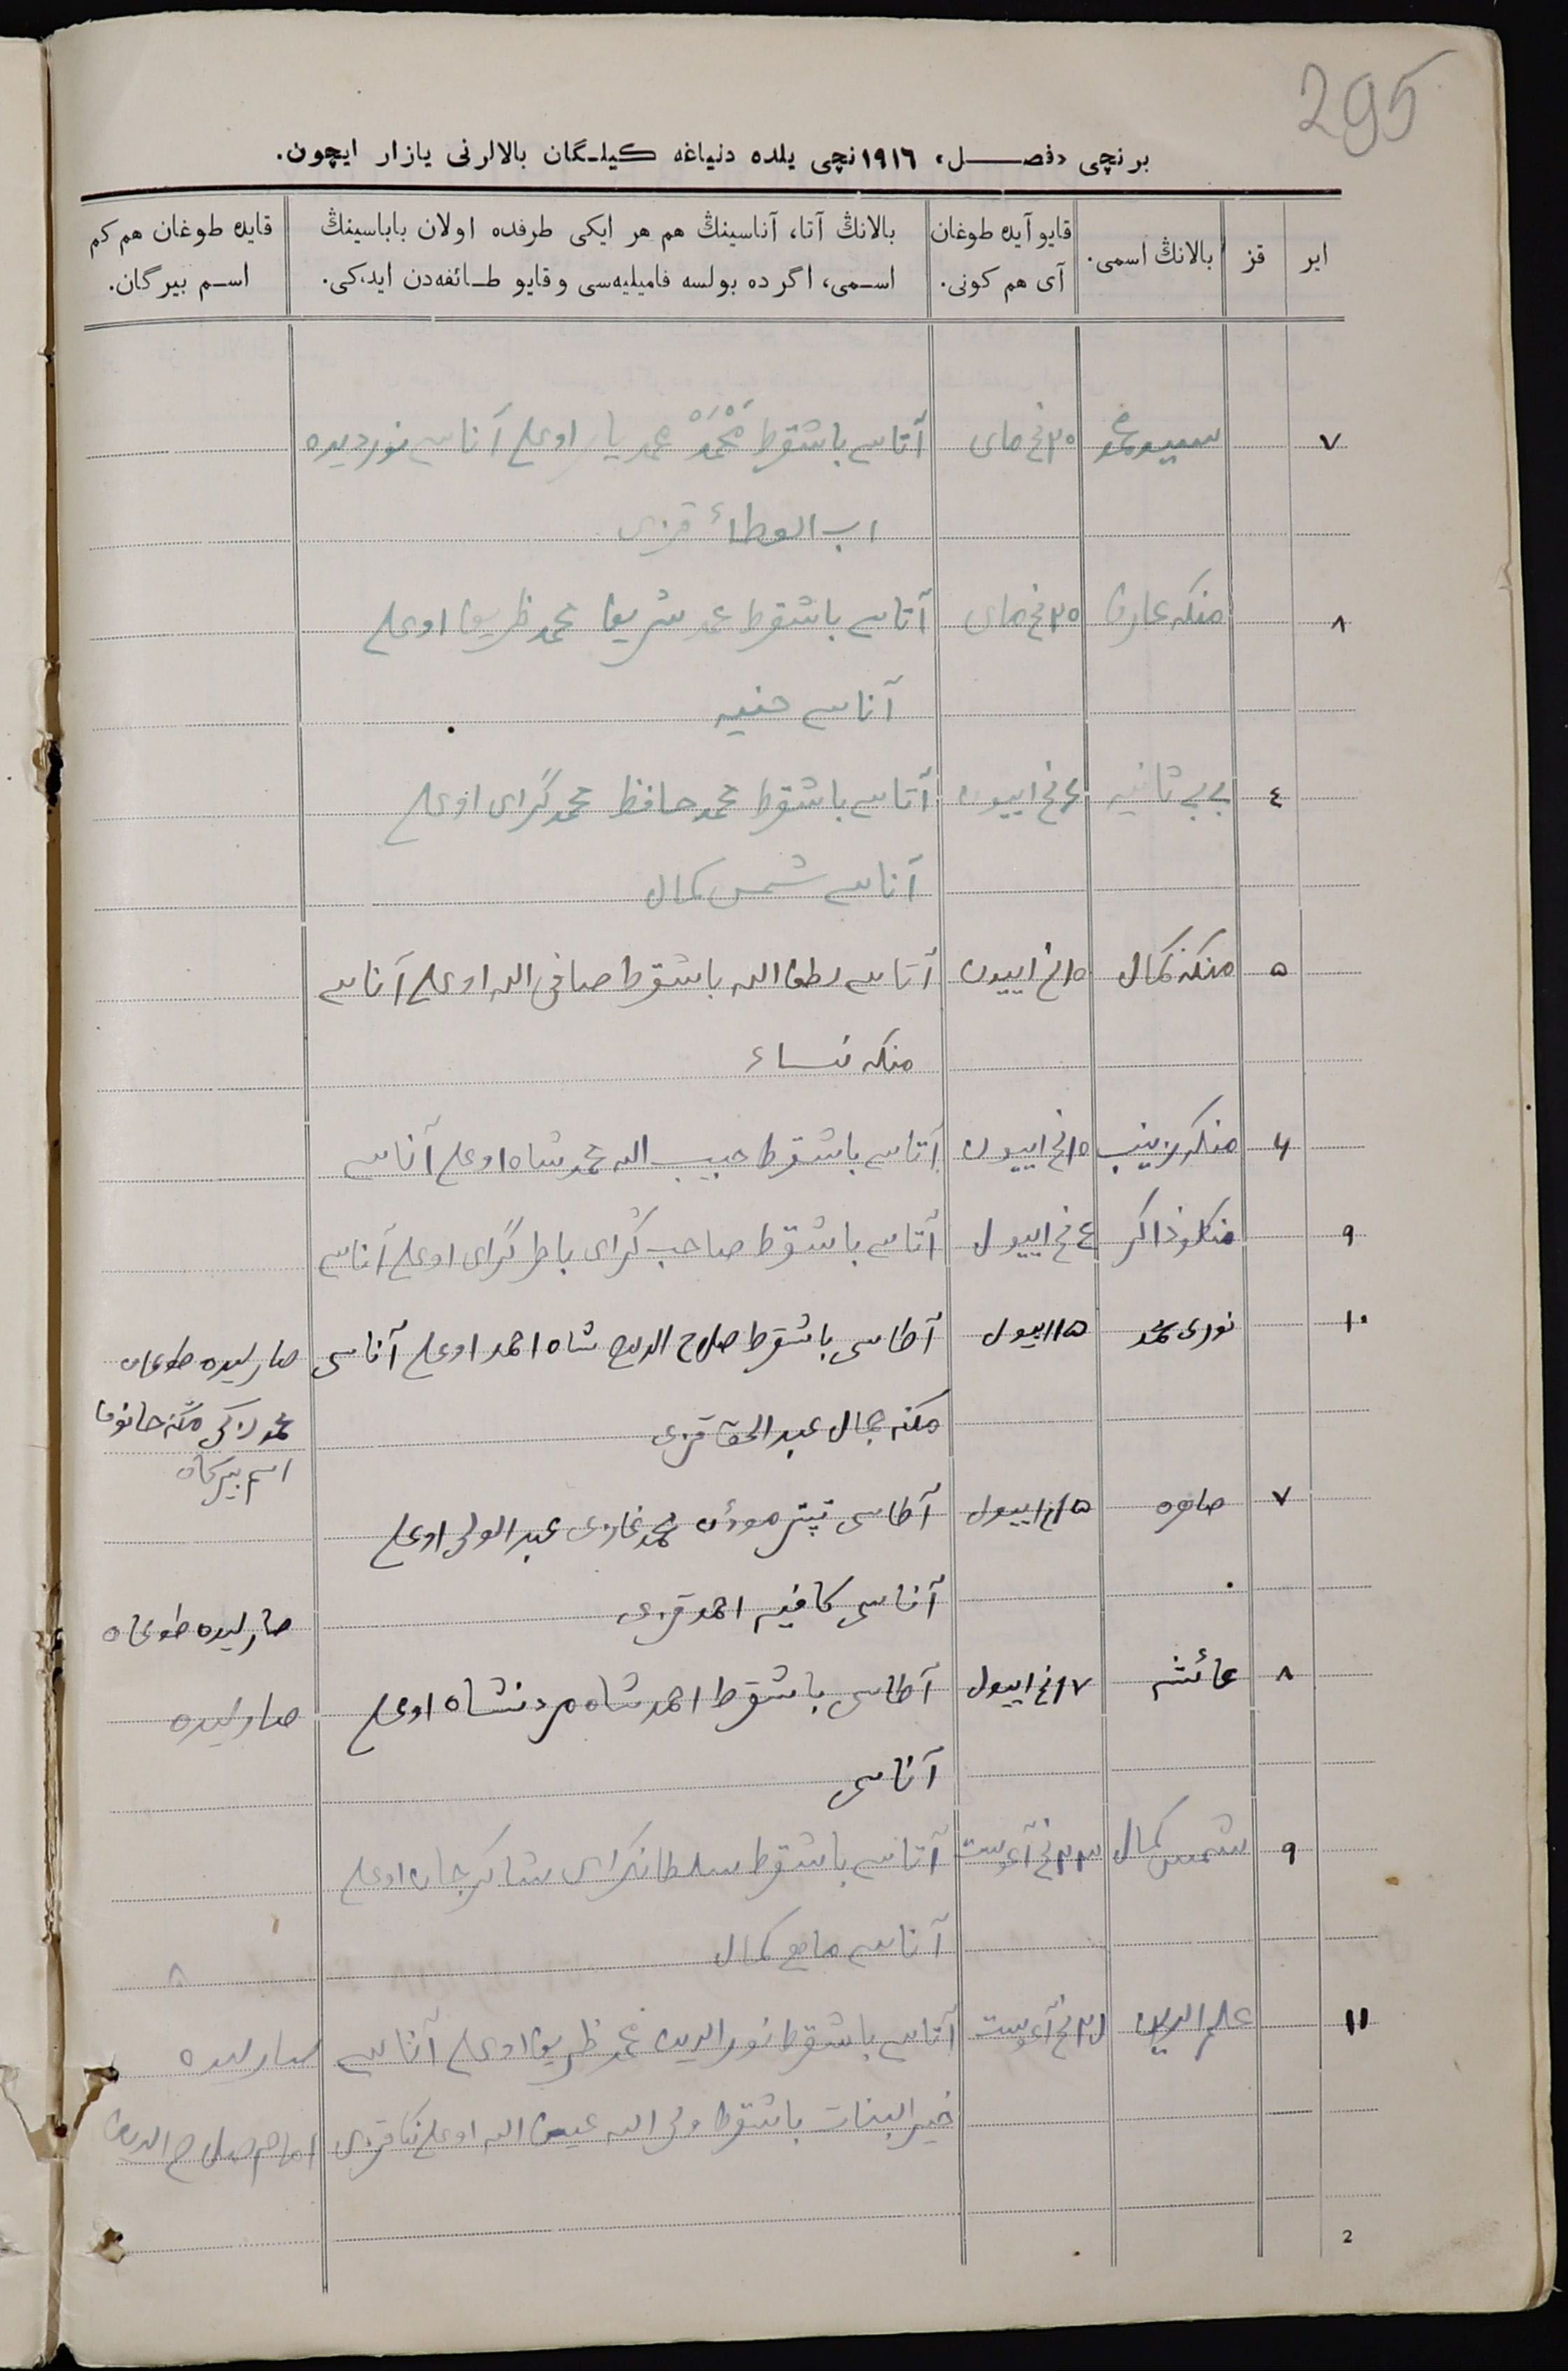 295
برنچی «فصل» ١٩١٦نچی یلده دنیاغه کیلگان بالالرنی یازار ایچون.
ایر قز بالانڭ اسمی. قایو آیده طوغان آی هم کونی. بالانڭ آتا، آناسینڭ هم هر ایکی طرفده اولان باباسینڭ اسمی، اگرده بولسه فامیلیه‌سی و قایو طائفه‌دن ایدکی. قایده طوغان هم کم اسم بیرگان.
٧ سیدمحمد ٢٠نچی مای آتاسی باشقرط مُحَمَّد محمدیار اوغلی آناسی نوردیده
قزی
٨ منکه عارف ٢٥نچی مای آتاسی باشقرط محمد شریف محمد ظریف اوغلی
آناسی حنیفه
٤ بی بی ثانیه نچی اییون آتاسی باشقرط محمد حافظ محمد گرای اوغلی
آناسی شمس کمال
٥ منکه کمال ١٥نچی اییون آتاسی لطف الله باشقرط صافی الله اوغلی آناسی
منکه نساء
٦ منکه زینب ١٥نچی اییون آتاسی باشقرط حبیب الله محمد شاه اوغلی آناسی
٩ منکلو ذاکر ٤نچی اییول آتاسی باشقرط صاحب گرای باطر گرای اوغلی آناسی
١٠ نوری محمد ١٥ اییول آطاسی باشقرط صلاح الدین شاه احمد اوغلی آناسی صارلیده طوغان
منکه جمال عبد الحق قزی
اسم بیرگان
٧ صابره ١٥نچی اییول آطاسی تیبتر مؤذن محمد غازی عبد الولی اوغلی
آناسی کافیه احمد قزی صارلیده طوغان
٨ عائشه ١٧نچی اییول آطاسی باشقرط احمد شاه مردنشاه اوغلی صارلیده
آناسی
٩ شمس کمال ٢٣نچی آغوست آتاسی باشقرط سلطانگرای شاکرجان اوغلی
آناسی کمال
١١ علم الدین نچی آغوست آتاسی باشقرط نورالدین محمد ظریف اوغلی آناسی صارلیده
خیر البنات باشقرط ولی الله اوغلی قزی امام صلاح الدین
2